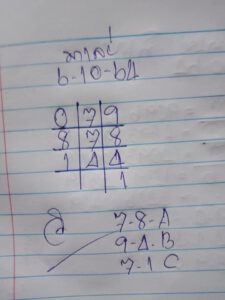 6-10-64
0 7 9
8 7 8
1 4 4
1
7-8-A
9-4-B
7-1 C